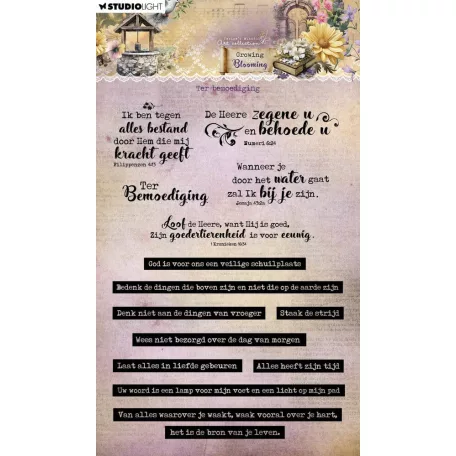 STUDIOLIGHT
Art collection
Growing
Blooming
Ter bemoediging
Ik ben tegen
alles bestand
door Hem die mij
kracht geeft
Filippenzen 4:13
De Heere Zegene u
en behoede u
Numeri 6:24
Ter
Bemoediging
Wanneer je
door het water gaat
zal Ik bij je zijn.
Jesaja 43:2a
Loof de Heere, want Hij is goed,
Zijn goedertierenheid is voor eeuwig.
1 Kronieken 16:34
God is voor ons een veilige schuilplaats
Bedenk de dingen die boven zijn en niet die op de aarde zijn
Denk niet aan de dingen van vroeger
Staak de strijd
Wees niet bezorgd over de dag van morgen
Laat alles in liefde gebeuren
Alles heeft zijn tijd
Uw woord is een lamp voor mijn voet en een licht op mijn pad
Van alles waarover je waakt, waak vooral over je hart,
het is de bron van je leven.